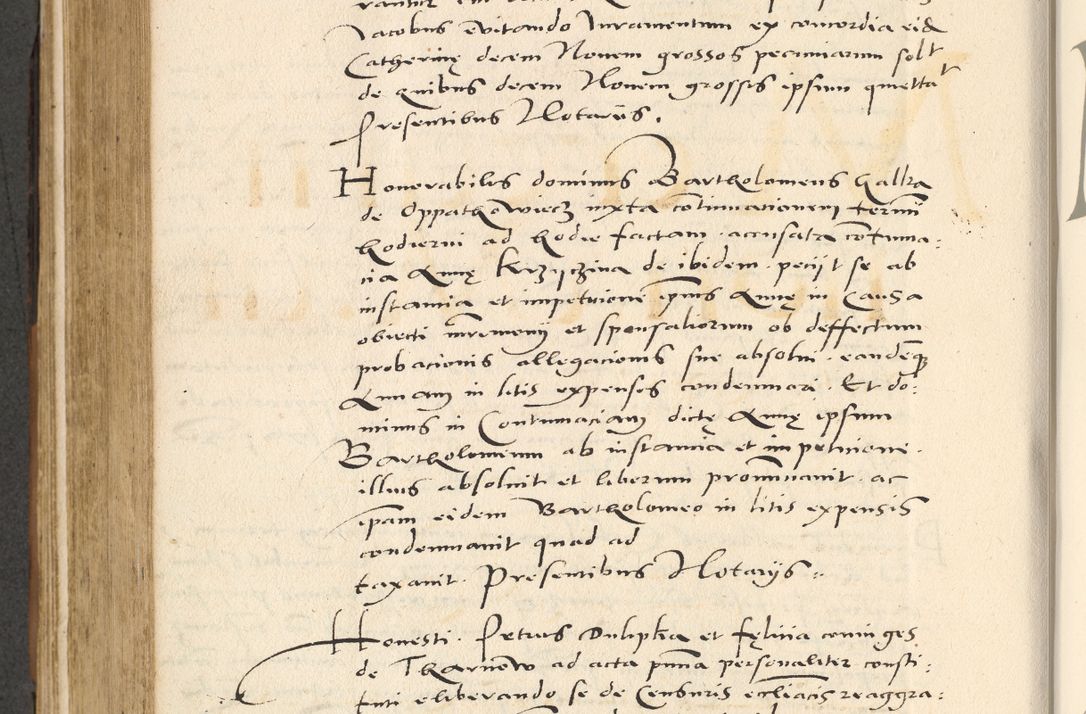 Jacobus evitando Juramentum ex concordia eid
Catherinę decem Novem grossos pecuniarum solt
de quibus decem Novem grossis ipsum quietta
Presentibus Notariis.
Honorabilis dominus Bartholomeus Kalka
de Oppathowiecz iuxta continuacionem termi
hodierni ad hodie factam accusata contuma:
cia Annę Krzyczina de ibidem peciit se ab
instantia et impeticione ipius Annę in Causa
obiecti mremonij et sponsaliorum ob deffectum
probacionis allegacionis sue absolvi eandemque
Annam in litis expensis condemnari. Et do:
minus in Contumaciam dictę Annę ipsum
Bartholomeum ab instantia et impeticione
illius absolvit et liberum pronunciavit ac
ipam eidem Bartholomeo in litis expensis
condemnavit quod ad
taxavit. Presentibus Notarijs
Honesti Petrus Duliphta et Felicia coniuges
de Tharnow ad acta pntia personaliter consti:
tuti eliberando se de Censuris eccliacis reaggra: